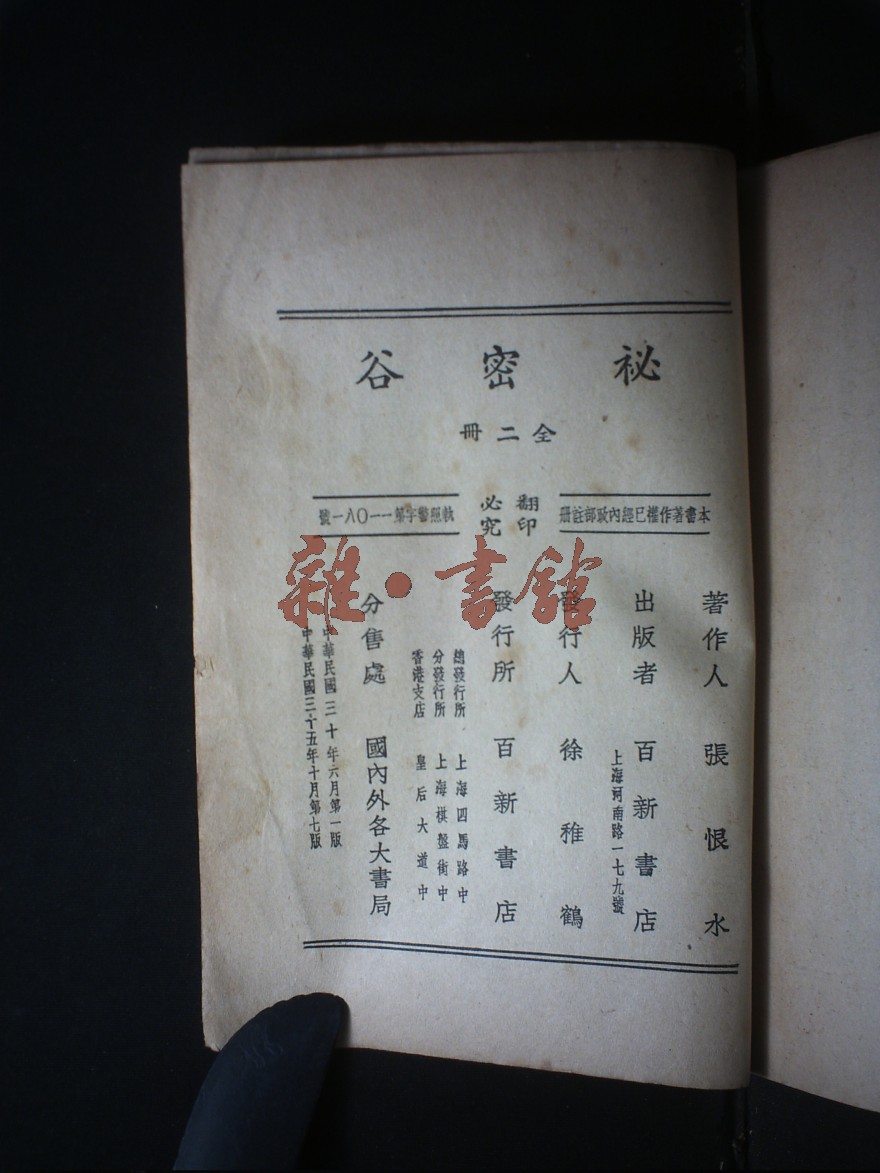 祕密谷
全二冊
本書著作權已經內政部註册
翻印
必究
執照警字第一一〇八一號
著作人 張恨水
出版者 百新書店
上海河南路一七九號
發行人 徐稚鶴
發行所 百新書店
總發行所 上海四馬路中
分發行所 上海棋盤街中
香港支店 皇后大道中
分售處 國內外各大書局
中華民國三十年六月第一版
中華民國三十五年十月第七版
雜·書館